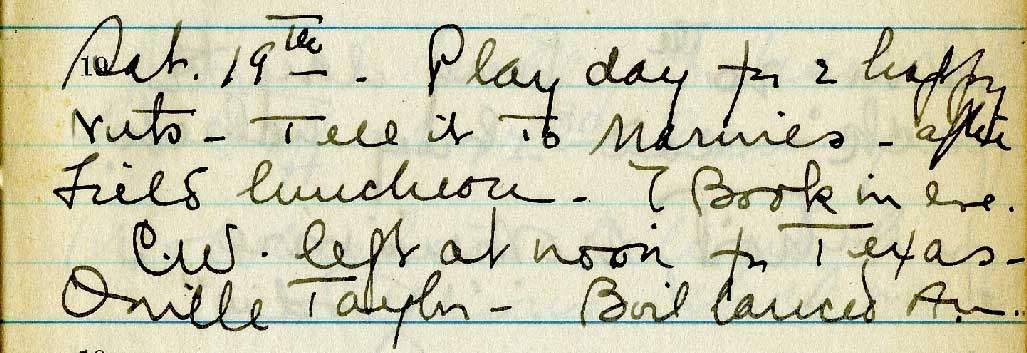 Sat. 19th - Play day for 2 happy
nuts - Tell it to Marines - after
Field luncheon - Book in eve.
C.W. left at noon for Texas -
Orville Taylor - Boil lanced A.M.